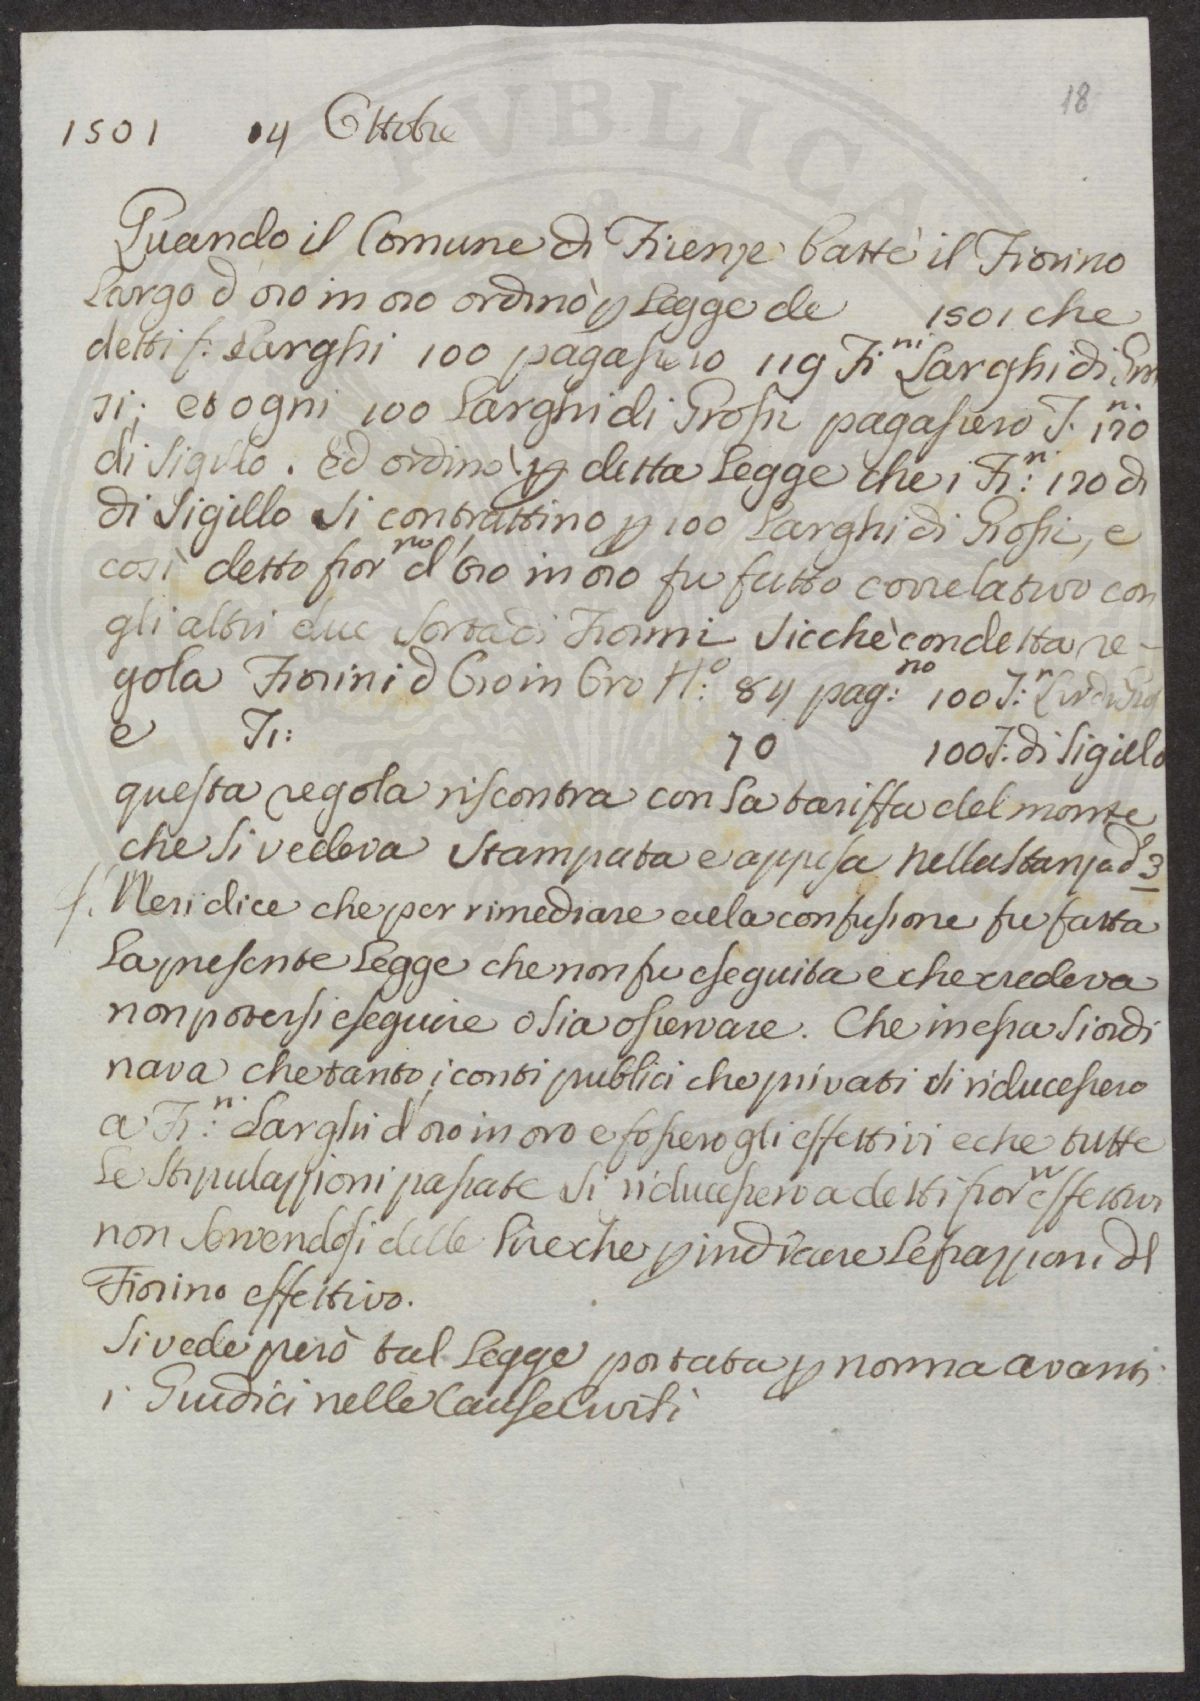 18
1501 14 Ottobre
Quando il Comune di Firenze battè il Fiorino
Largo d'oro in oro ordinò p Legge de 1501 che
detti f. Larghi 100 pagassero 119 Fi.ni Larghi di Gros
si; et ogni 100 Larghi di Grossi pagassero F.ni 120
di Sigillo. Ed ordinò p detta Legge che i Fi.ni 120 di
di Sigillo si contrattino p 100 Larghi di Grossi, e
così detto fior.no d'Oro in oro fu fatto correlativo con
gli altri due sorta di Fiorini sicchè con detta re-
gola Fiorini d'Oro in Oro N.o 84 pag:no 100 F:n Lar. di Gros
e Fi: 70 100 F: di Sigillo
questa regola riscontra con la tariffa del monte
che si vedeva stampata e appesa nella stanza d.o 3
f. Neri dice che per rimediare alla confusione fu fatta
la presente Legge che non fu eseguita e che credeva
non potersi eseguire o sia osservare. Che in essa si ordi
nava che tanto i conti publici che privati si riducessero
a Fi:ni Larghi d'oro in oro e fossero gli effettivi e che tutte
le stipulazzioni passate si riducessero a detti fior.ni effettivi
non servendosi delle lire che p indicare le frazzioni del
Fiorino effettivo.
Si vede però tal Legge portata p norma avanti
i Giudici nelle Cause Civili
PVBLICA